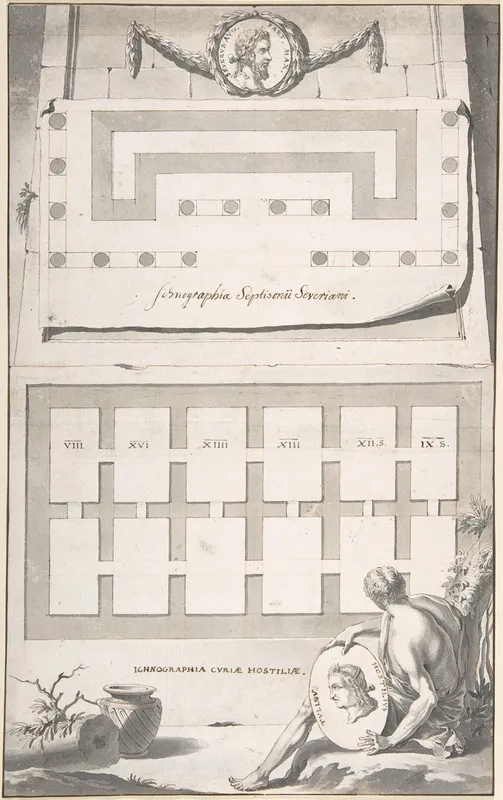 Ichnographia Septisonii Severiani.
VIII XVI XIIII XIII XII.S. IX.S.
ICHNOGRAPHIA CVRIÆ HOSTILIÆ.
TVLLIVS HOSTILIVS